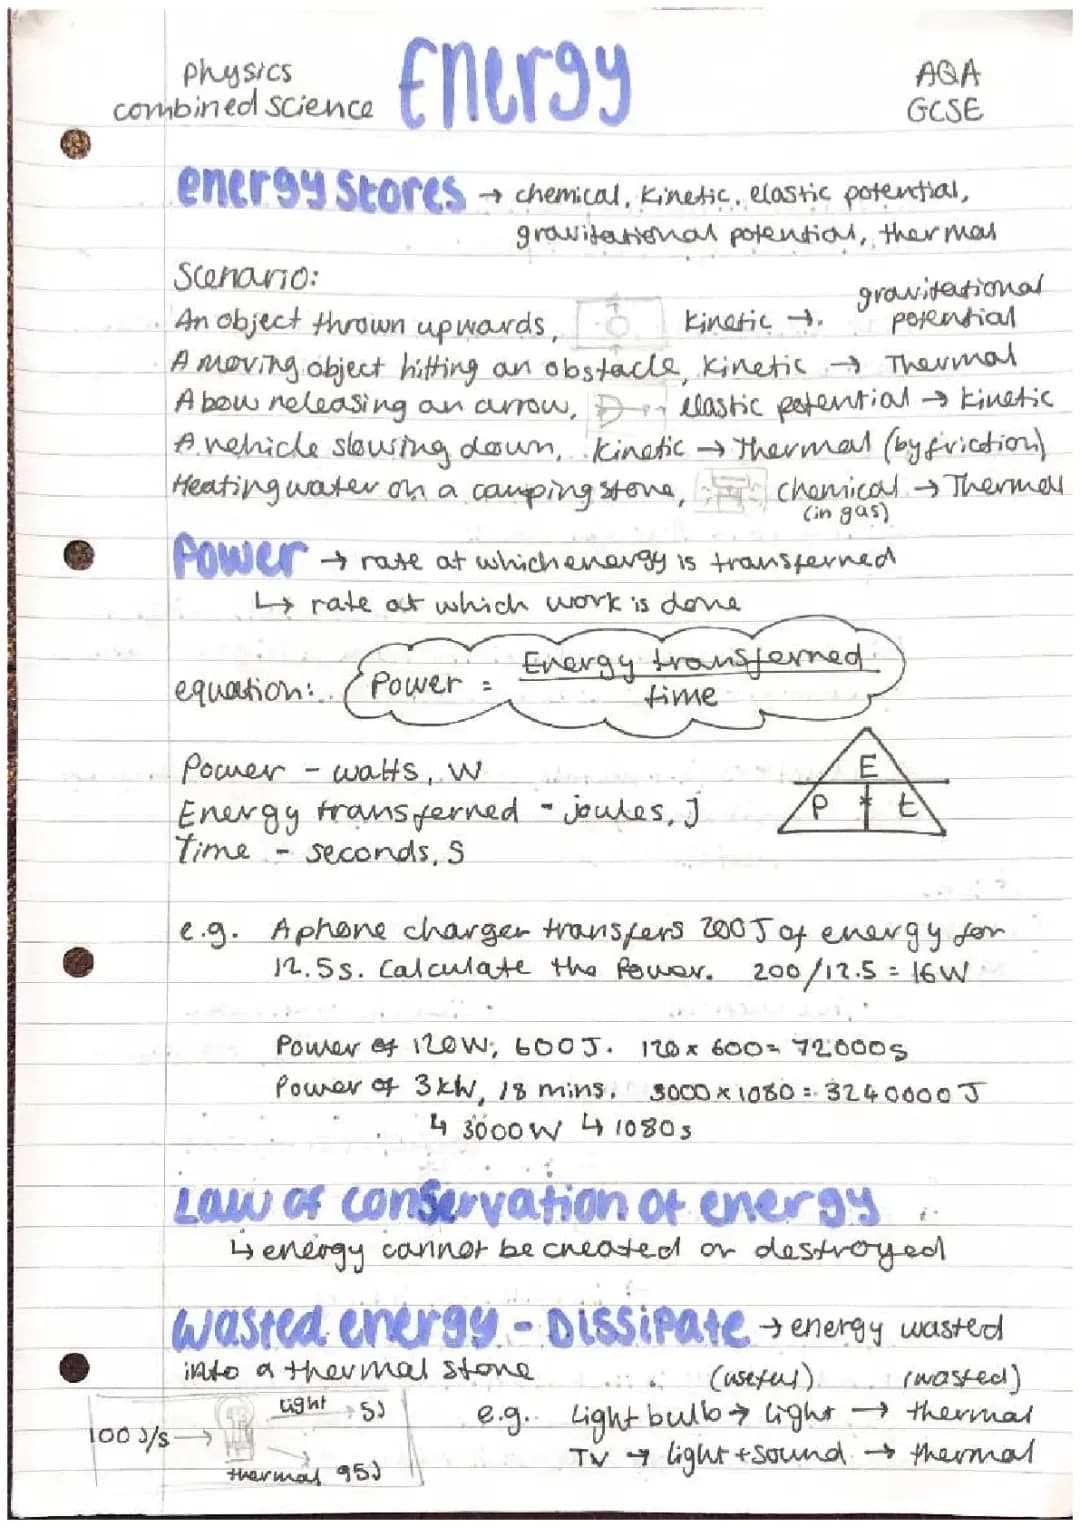 Physics
combined science
Energy
AQA
GCSE
energy stores → chemical, kinetic, elastic potential,
gravitational potential, thermal
Scenario:
An object thrown upwards, kinetic → gravitational potential
A moving object hitting an obstacle, kinetic → Thermal
A bow releasing an arrow, elastic potential → kinetic
A vehicle slowing down, kinetic → Thermal (by friction)
Heating water on a camping stove, chemical → Thermal
(in gas)
Power → rate at which energy is transferred
↳ rate at which work is done
equation: Power = Energy transferred
time
Power - watts, W
E
Energy transferred - joules, J
P × t
Time - seconds, S
e.g. A phone charger transfers 200J of energy for
12.5s. Calculate the Power. 200/12.5 = 16W
Power of 120W, 600J. 120 × 600 = 72000s
Power of 3kW, 18 mins. 3000 × 1080 = 3240000J
↳ 3000W ↳ 1080s
Law of conservation of energy
↳ energy cannot be created or destroyed
Wasted energy - Dissipate → energy wasted
into a thermal store (useful) (wasted)
light → 5J
e.g. Light bulb → light → thermal
100 J/s →
TV → light + sound → thermal
thermal 95J